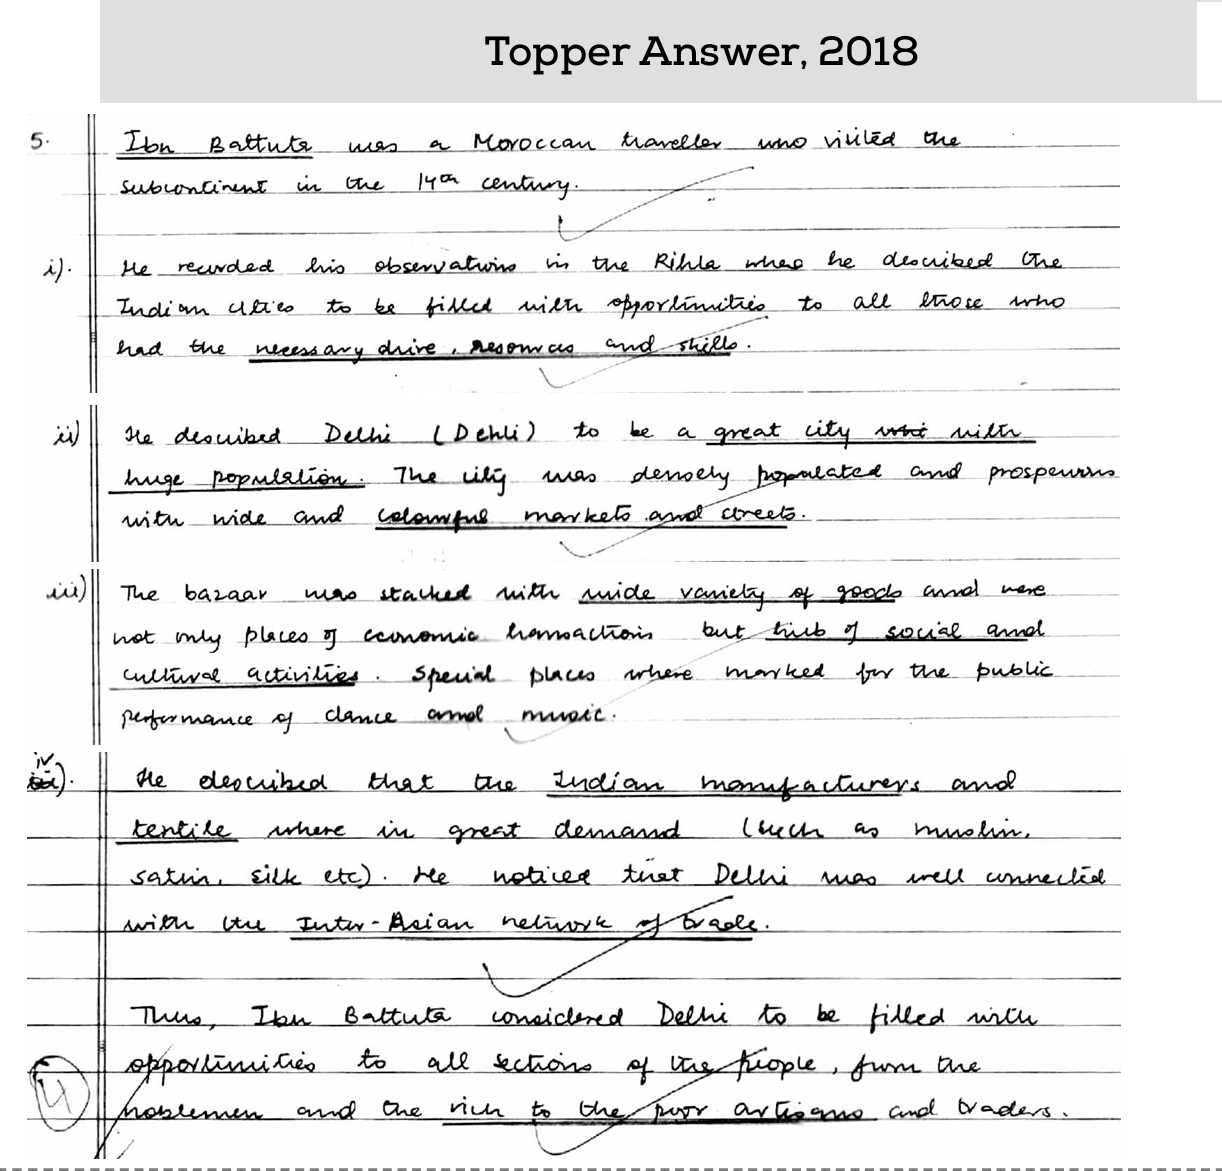 Topper Answer, 2018
5. Ibn Battuta was a Moroccan traveller who visited the
subcontinent in the 14th century.
i). He recorded his observations in the Rihla where he described the
Indian cities to be filled with opportunities to all those who
had the necessary drive, resources and skills.
ii) He described Delhi (Dehli) to be a great city with
huge population. The city was densely populated and prosperous
with wide and colourful markets and streets.
iii) The bazaar was stacked with wide variety of goods and were
not only places of economic transactions but hub of social and
cultural activities. Special places where marked for the public
performance of dance and music.
iv). He described that the Indian manufacturers and
textile where in great demand (such as muslin,
satin, silk etc). He noticed that Delhi was well connected
with the Inter-Asian network of trade.
Thus, Ibn Battuta considered Delhi to be filled with
opportunities to all sections of the people, from the
noblemen and the rich to the poor artisans and traders.
4